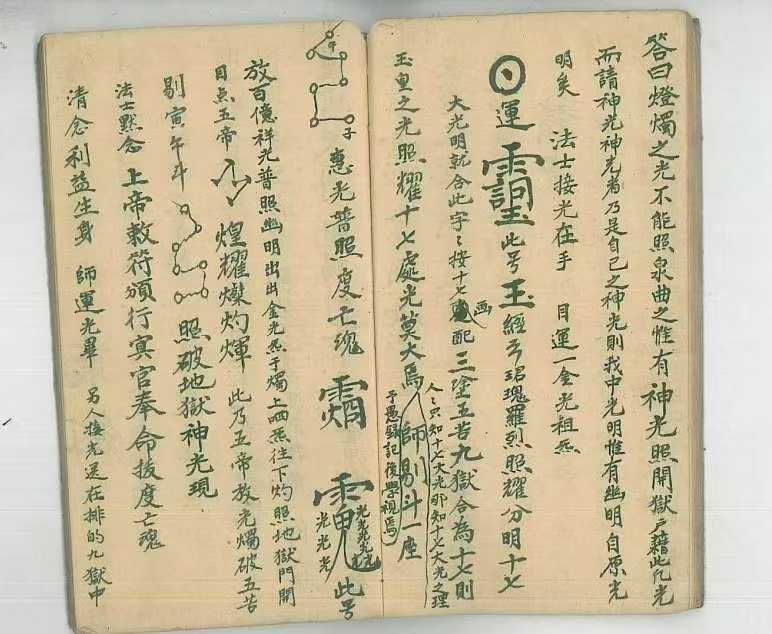 答曰燈燭之光不能照泉曲之惟有神光照開獄戶藉此亿光
而請神光神光者乃是自己之神光則我中光明惟有幽明自原光
明矣 法士接光在手 目運一金光祖炁
運 此号玉經云珺瑰羅烈照耀分明十七
大光明就合此字〻按十七畫配三塗五苦九獄合為十七則
人〻只知十七大光那知十七大光之理
玉皇之光照耀十七處光莫大焉 師剔斗一座
予愚録記後學視焉
午 子 惠光普照度亡魂 此号
光光光光光光光
放百億祥光普照幽明出出金光炁于燭上哂炁往下灼照地獄門開
目点五帝 煌耀爍灼煇 此乃五帝放光燭破五苦
剔寅午斗 照破地獄神光現
法士默念 上帝敕符頒行冥官奉命拔度亡魂
清念利益生身 師運光畢 另人接光送在排的九獄中